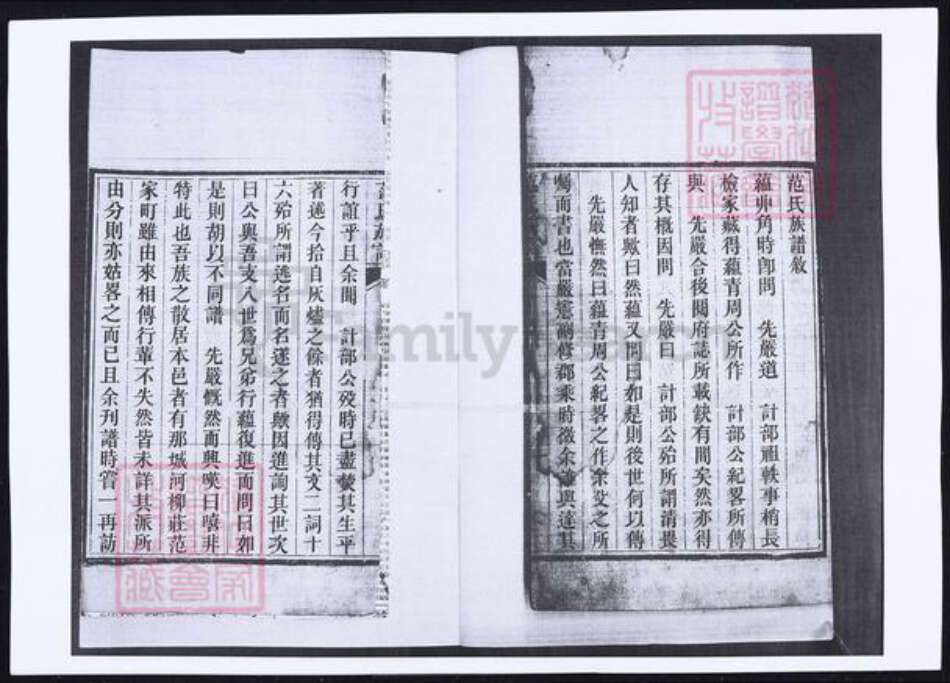 范氏族譜敘
蘊丱角時卽問　先嚴道　計部祖軼事稍長
檢家藏得蘊青周公所作　計部公紀畧所傳
與　先嚴合後閱府誌所載鈌有間矣然亦得
存其概因問　先嚴曰　計部公殆所謂清畏
人知者歟曰然蘊又問曰如是則後世何以傳
先嚴憮然曰蘊青周公紀畧之作余父之所
囑而書也當嚴憲副修郡乘時徵余譜與達其
行誼乎且余聞　計部公歿時已盡焚其生平
著述今拾自灰燼之餘者猶得傳其文二詞十
六殆所謂逃名而名遂之者歟因進詢其世次
曰公與吾支八世爲兄弟行蘊復進而問曰如
是則胡以不同譜　先嚴慨然而興嘆曰噫非
特此也吾族之散居本邑者有那城河柳莊范
家町雖由來相傳行輩不失然皆未詳其派所
由分則亦姑畧之而已且余刊譜時嘗一再訪
FamilySearch